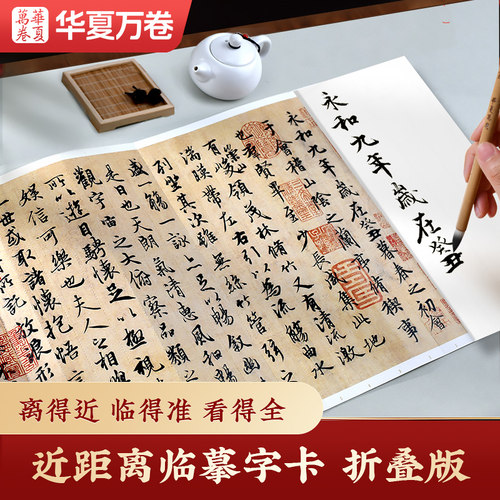 萬華
卷夏
华夏万卷
永和九年歲在癸丑
永和九年歲在癸丑暮春之初會
于會稽山陰之蘭亭脩禊事
也羣賢畢至少長咸集此地
有崇山峻領茂林脩竹又有清流激
湍暎帶左右引以為流觴曲水
列坐其次雖無絲竹管弦之
盛一觴一詠亦足以暢敘幽情
是日也天朗氣清惠風和暢
觀宇宙之大俯察品類之
所以遊目騁懷足以極視
娛信可樂也夫人之相
一世或取諸懷抱悟言
所託放浪形
离得近 临得准 看得全
近距离临摹字卡 折叠版